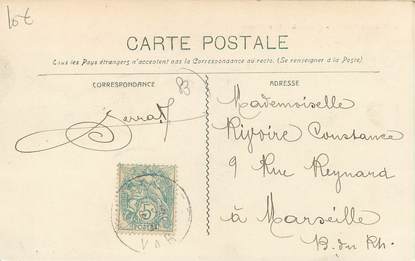 lot
CARTE POSTALE
Tous les Pays étrangers n'acceptent pas la Correspondance au recto. (Se renseigner à la Poste)
CORRESPONDANCE
83
ADRESSE
Mademoiselle
Rivoire Constance
9 Rue Reynard
à Marseille
B. du Rh.
5
POSTES
VAR